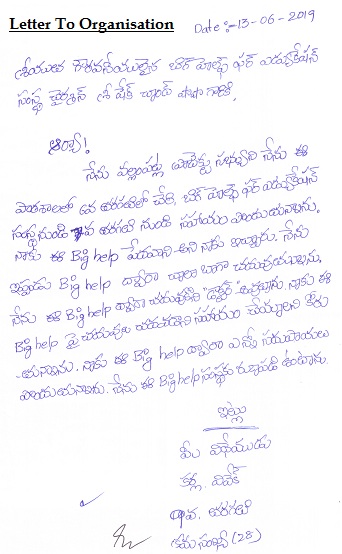 Letter To Organisation
Date :- 13-06-2019
శ్రీయుత గౌరవనీయులైన బిగ్ హెల్ప్ ఫర్ ఎడ్యుకేషన్
సంస్థ చైర్మన్ శ్రీ షేక్ చాంద్ పాషా గారికి,
ఆర్యా!
నేను ఈ
పాఠశాలలో 6వ తరగతిలో చేరి, బిగ్ హెల్ప్ ఫర్ ఎడ్యుకేషన్
సంస్థ నుండి 7వ తరగతి నుండి సహాయం పొందుతున్నాను.
నాకు ఈ Big help పేదవాని అని నాకు ఇచ్చారు. నేను
ఇప్పుడు Big help ద్వారా చాలా బాగా చదువుతున్నాను.
నేను ఈ Big help ద్వారా చదువుకొని "డాక్టర్" అవుతాను. నాకు ఈ
Big help పై చదువులు చదవడానికి సహాయం చేయ్యాలని కోరు
-తున్నాను. నాకు ఈ Big help ద్వారా ఎన్నో సదుపాయలు
పొందుతున్నాను. నేను ఈ Big help సంస్థకు రుణపడి ఉంటాను.
ఇట్లు
మీ విధేయుడు
వివేక్
వ. తరగతి
క్రమసంఖ్య (28)